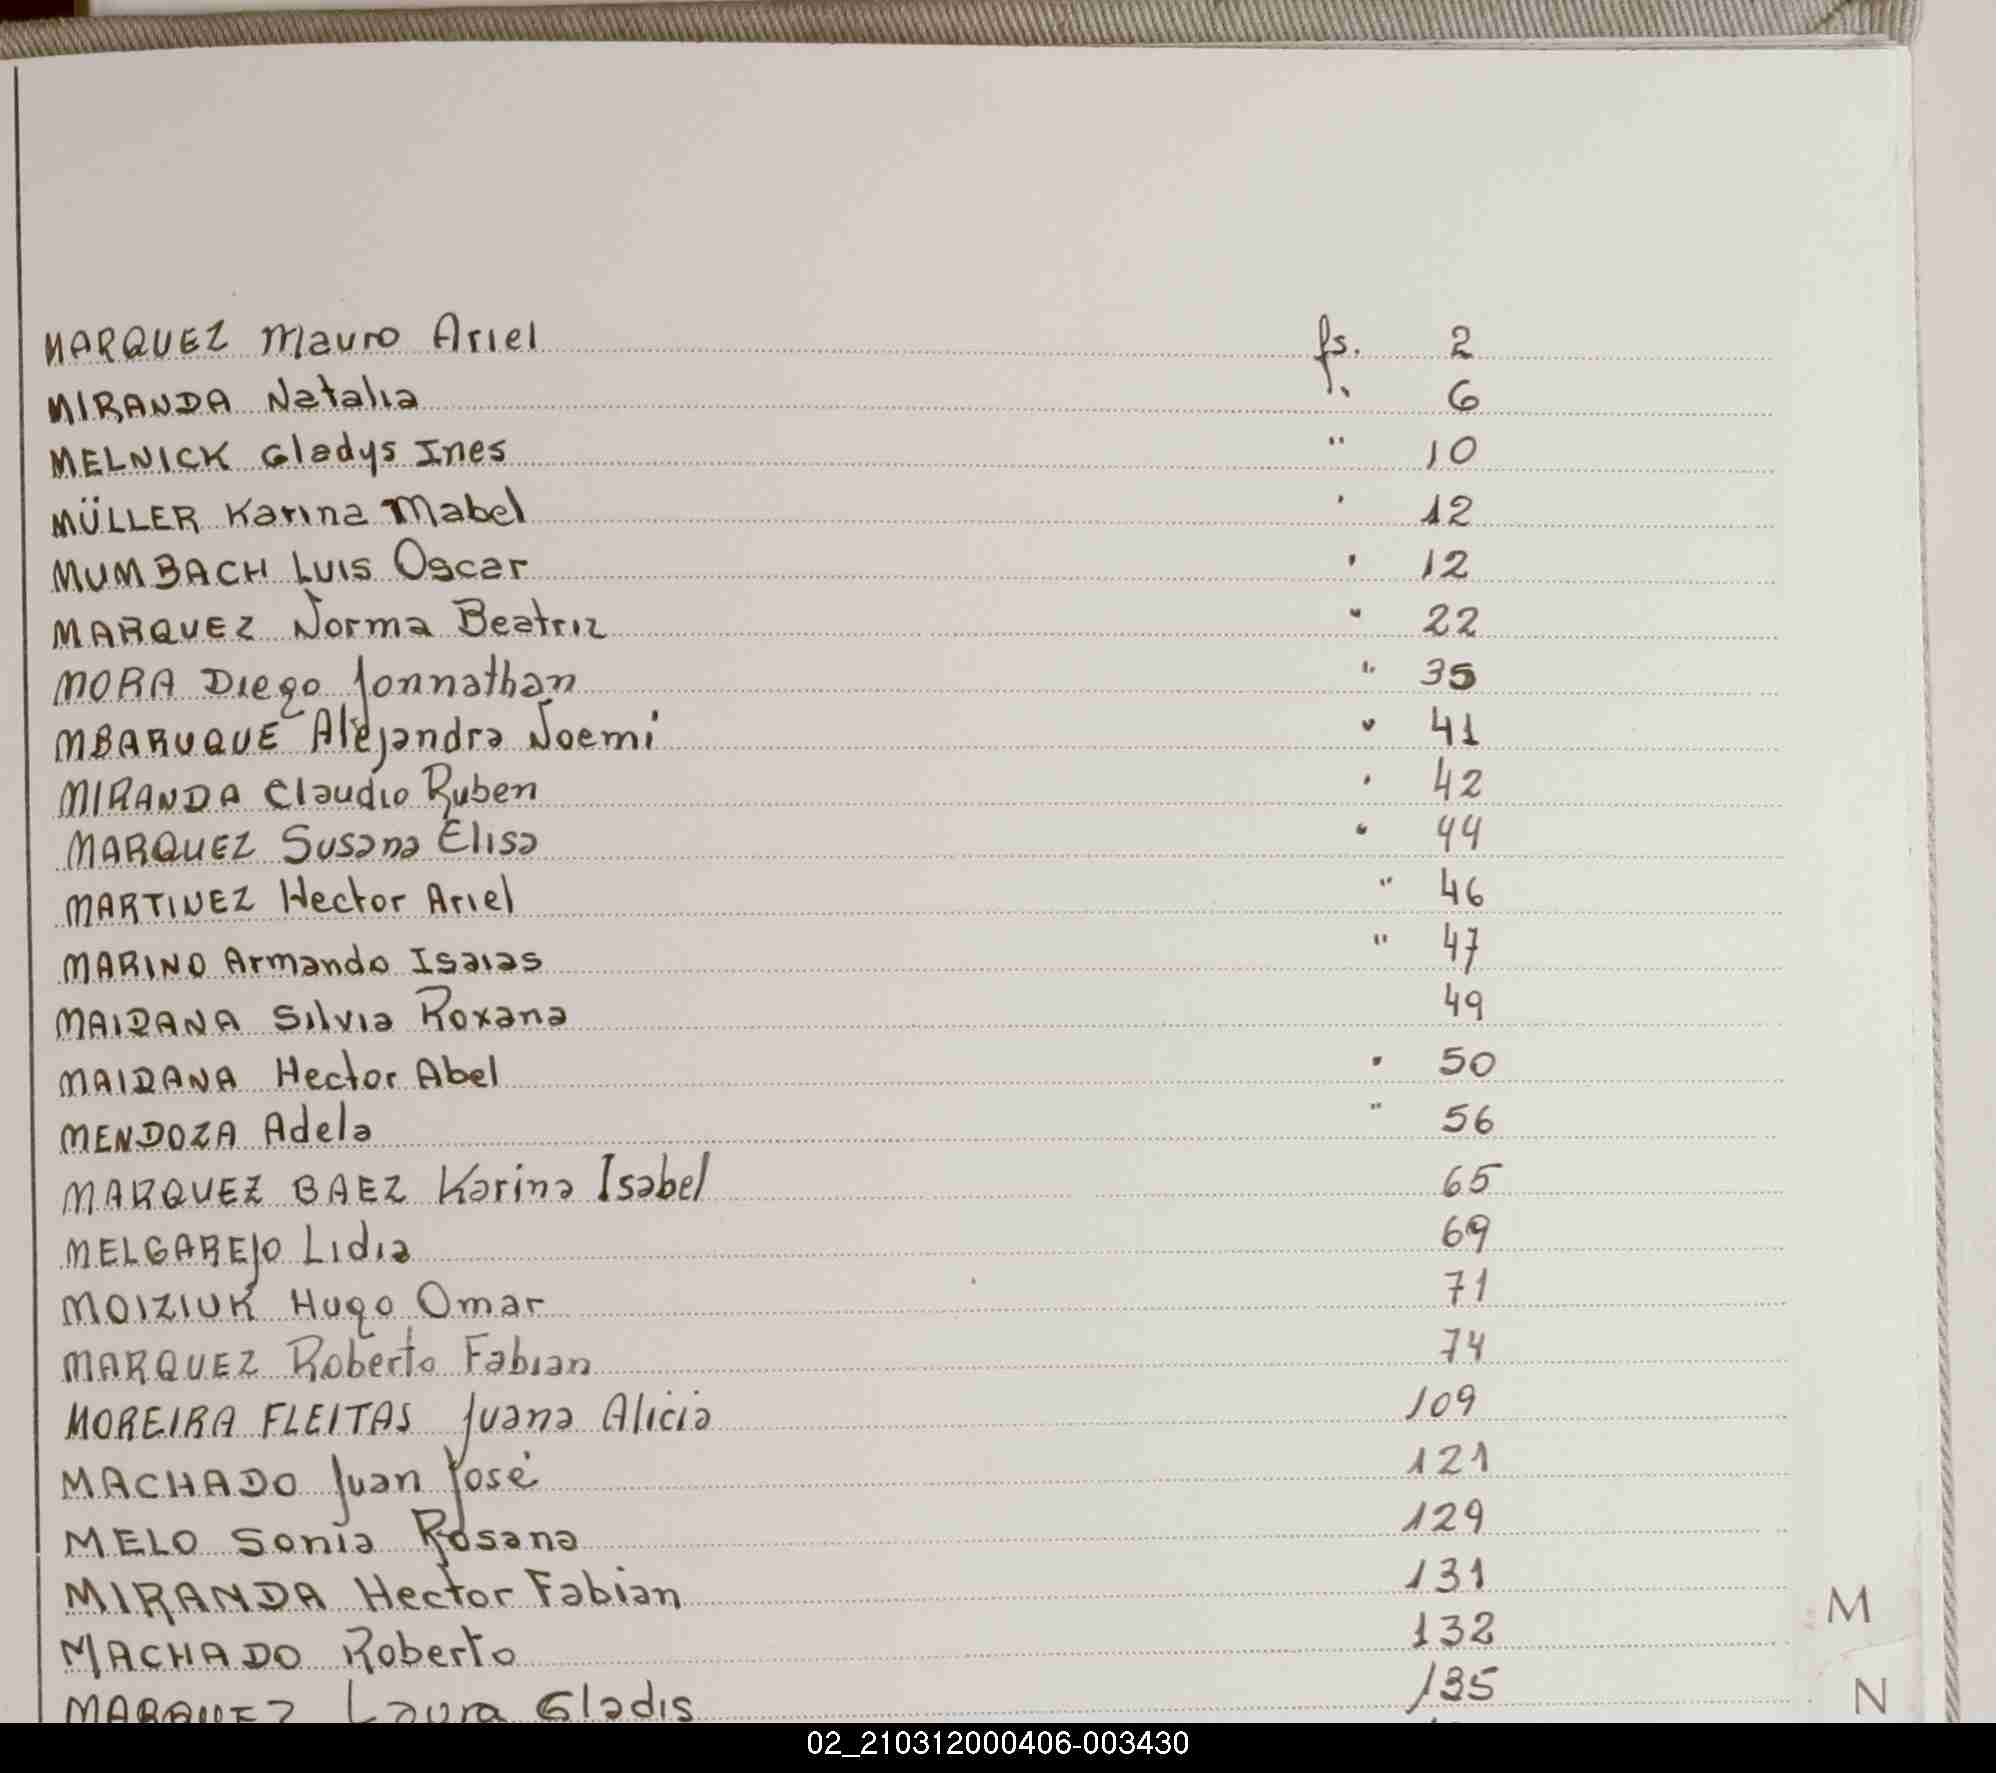 MARQUEZ Mauro Ariel fs. 2
MIRANDA Natalia " 6
MELNICK Gladys Ines " 10
MÜLLER Karina Mabel " 12
MUMBACH Luis Oscar " 12
MARQUEZ Norma Beatriz " 22
MORA Diego Jonnathan " 35
MBARUQUE Alejandra Noemi " 41
MIRANDA Claudio Ruben " 42
MARQUEZ Susana Elisa " 44
MARTINEZ Hector Ariel " 46
MARINO Armando Isaias " 47
MAIDANA Silvia Roxana 49
MAIDANA Hector Abel " 50
MENDOZA Adela " 56
MARQUEZ BAEZ Karina Isabel 65
MELGAREJO Lidia 69
MOIZIUK Hugo Omar 71
MARQUEZ Roberto Fabian 74
MOREIRA FLEITAS Juana Alicia 109
MACHADO Juan José 121
MELO Sonia Rosana 129
MIRANDA Hector Fabian 131
MACHADO Roberto 132
MARQUEZ Laura Gladis 135
M
N
02_210312000406-003430